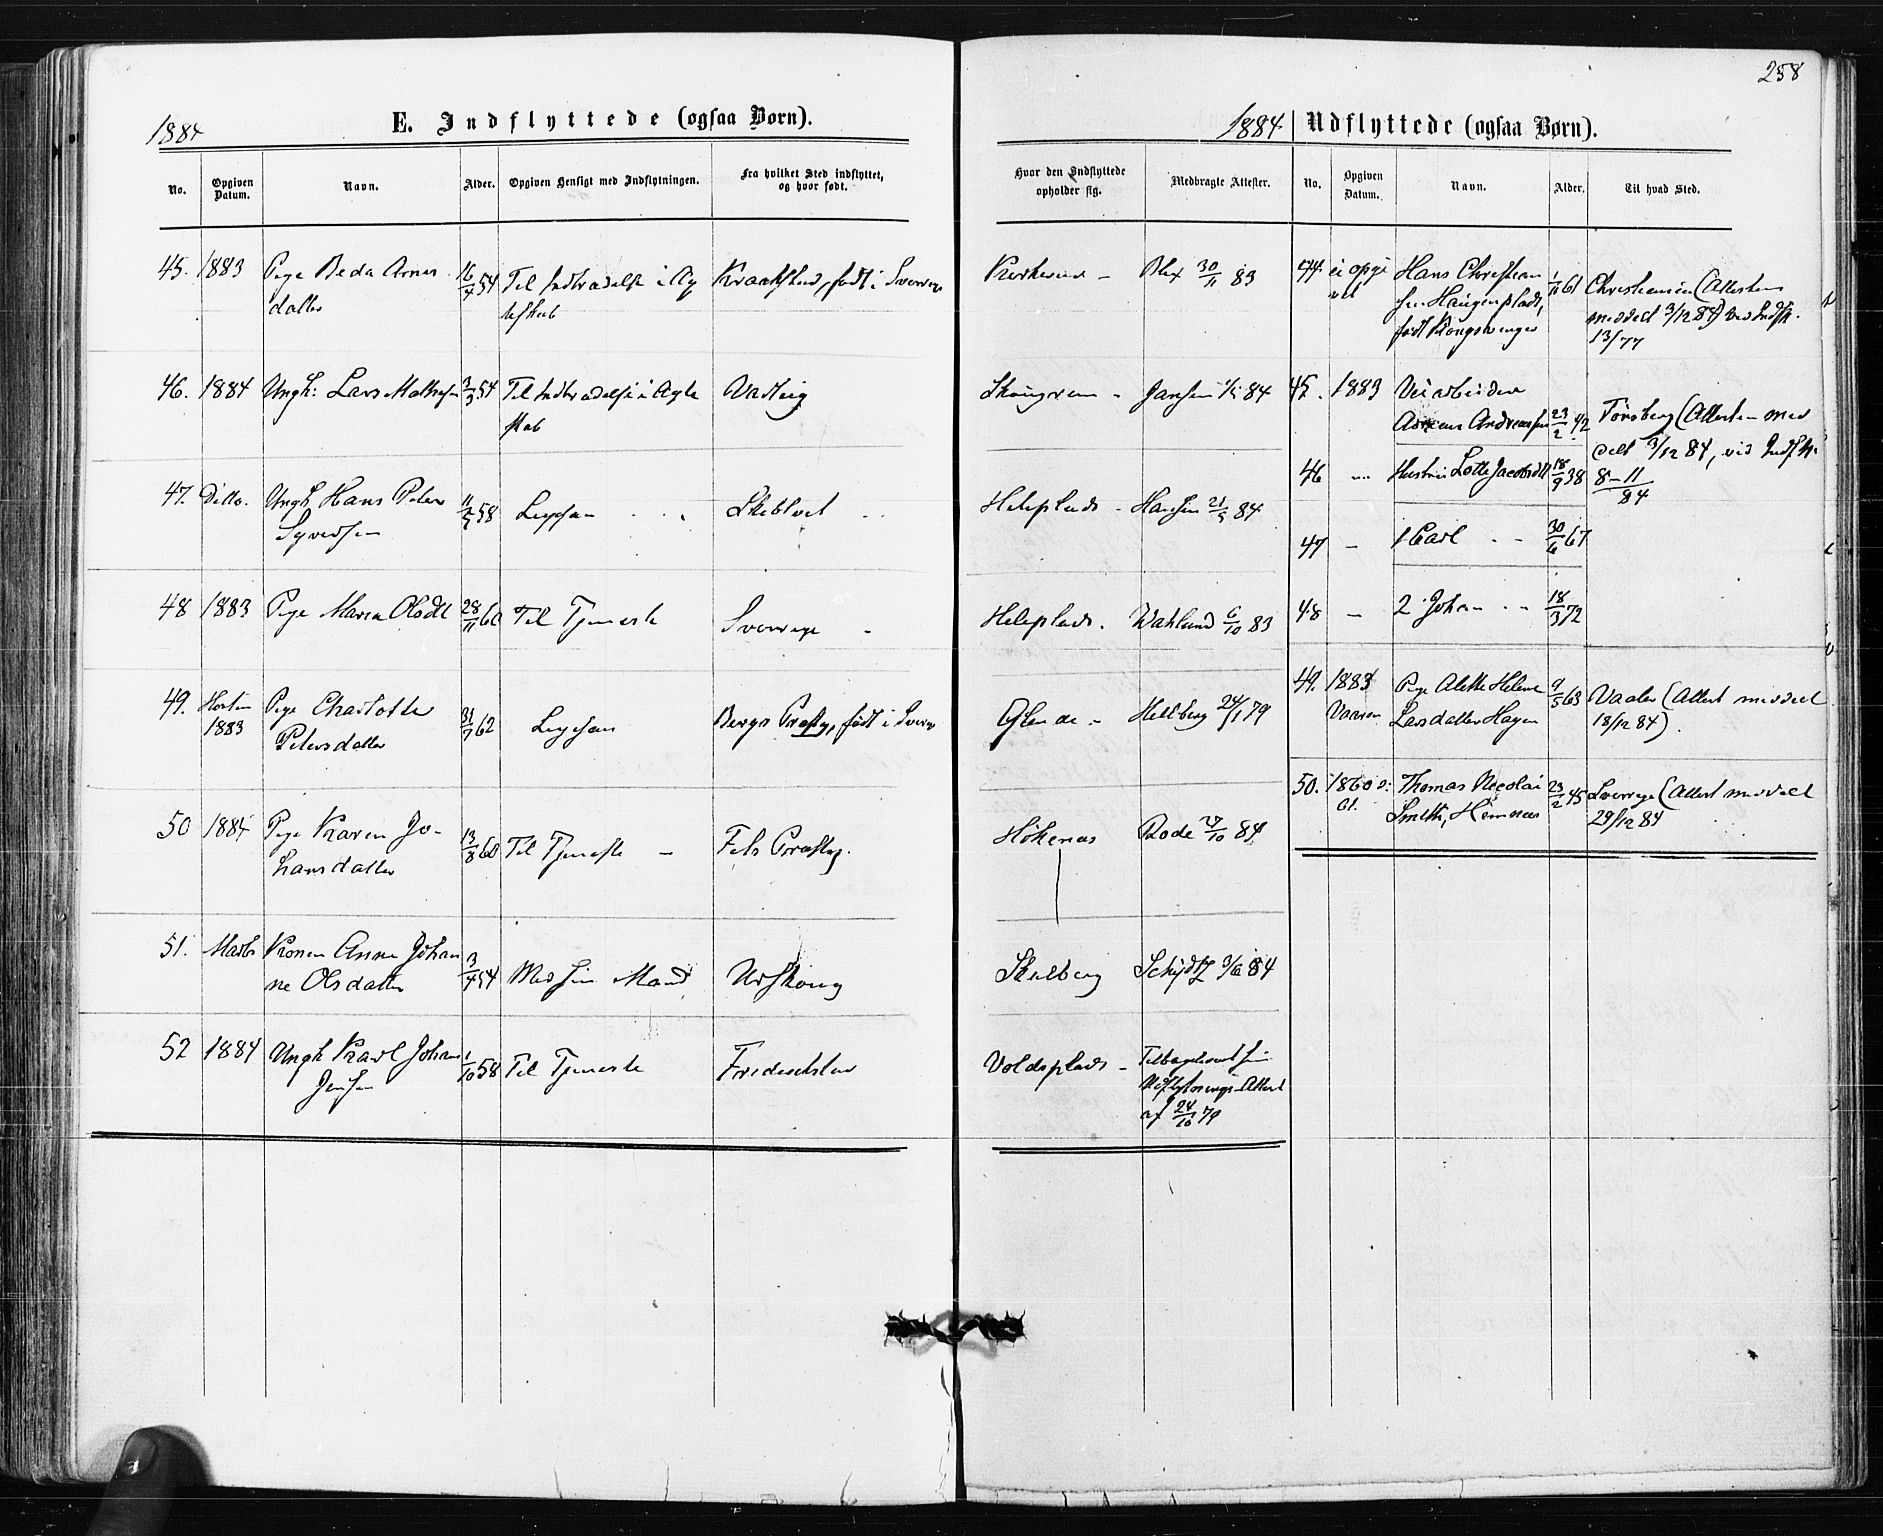 258
1884
E. Indflyttede (ogsaa Børn).
No.
Opgiven Datum.
Navn.
Alder.
Opgiven Hensigt med Indflytningen.
Fra hvilket Sted indflyttet, og hvor født.
Hvor den Indflyttede opholder sig.
Medbragte Attester.
45. 1883 Pige Beda Arnes 16/4 54 Til Indtrædelse i Æg Kraakstad, født i Sverrige 30/11 83
datter teskab
46. 1884 Ungk: Lars Mathisen 3/3 54 Til Indtrædelse i Ægte Skougrem - Jansen 84
skab
47. Ditto. Ungk. Hans Peter 11/5 58 Ligesaa Skibtvet Heleplads - Hansen 21/5 84
Syversen
48 1883 Pige Maren Olsdtr 28/11 60 Til Tjeneste Sverrige - Heleplads. Wahlund 6/10 83
49. Høsten Pige Charlotte 31/7 62 Ligesaa Bergs Præstg, født i Sverige Glende - Hellberg 24/1 79
1883 Petersdatter
50 1884 Pige Karen Jo- 13/8 60 Til Tjeneste - Præstg. Høkenæs Rode 27/10 84
hansdatter
51. Marts Konen Anne Johan 3/4 54 Med sin Mand Urskoug 84
ne Olsdatter
52 1884 Ungk Karl Johan 1/10 58 Til Tjeneste Fredrichstad Voldsplads - Tilbageleveret sin
Jensen Udflytnings-Attest
af 24/10 79
1884
Udflyttede (ogsaa Børn).
No.
Opgiven Datum.
Navn.
Alder.
Til hvad Sted.
44. ei opgi Hans Christian 1/11 61 Christiania (Attesten
vet sen Haugenplads, meddelt 3/12 84) ved Indfl.
født Kongsvinger 13/77
45. 1883 Veiarbeider
Andreassen 23/2 42 Tønsberg (Attesten med
delt 3/12 84, vid Indfl. N.
46 " Hustru Lotte Jacobsdtr 18/9 38 8-11/84
47 - 1 Carl 30/6 67
48 - 2 Johan 18/3 72
49. 1883 Pige Alette Helene 9/5 63 Vaaler (Attest meddelt
Vaaren Larsdatter Hagen 18/12 84).
50. 1860 à Thomas Nicolai 23/2 45 Sverrige (Attest meddelt
61. Smith, Hemnæs 29/12 84